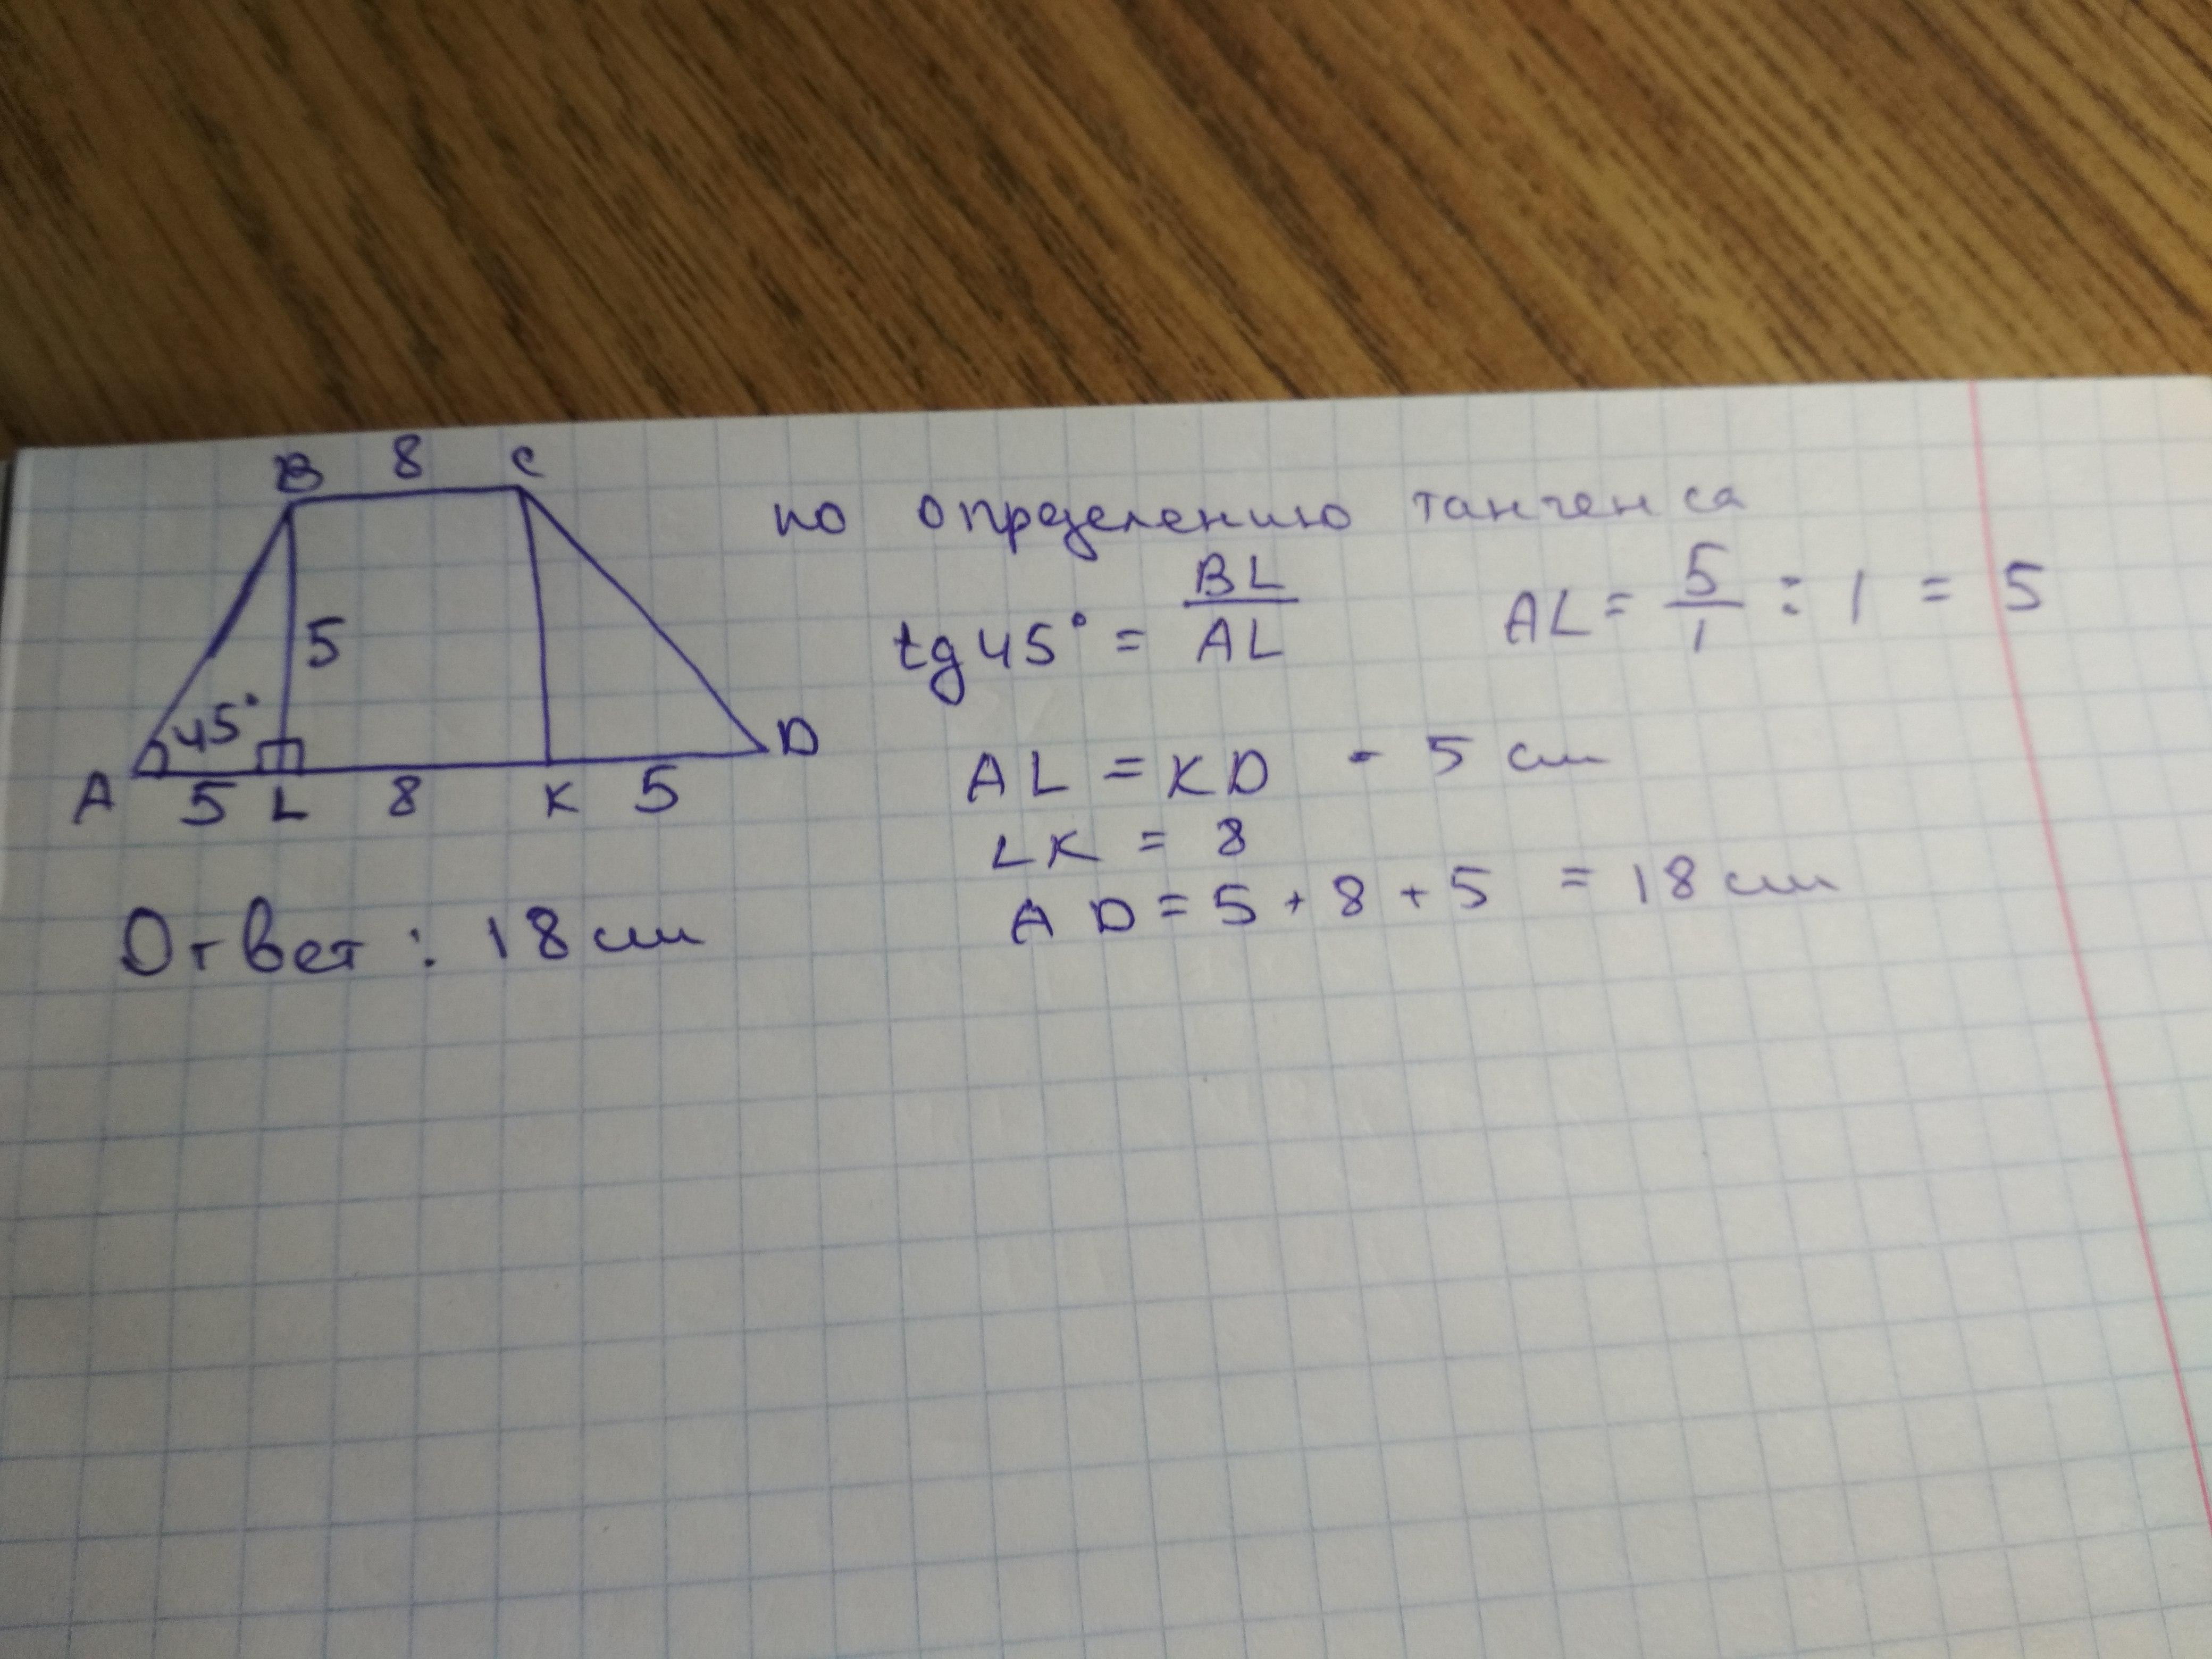 B 8 C
5
45°
A 5 L 8 K 5 D
по определению тангенса
tg 45° = BL/AL
AL = 5/1 : 1 = 5
AL = KD - 5 см
LK = 8
AD = 5 + 8 + 5 = 18 см
Ответ : 18 см